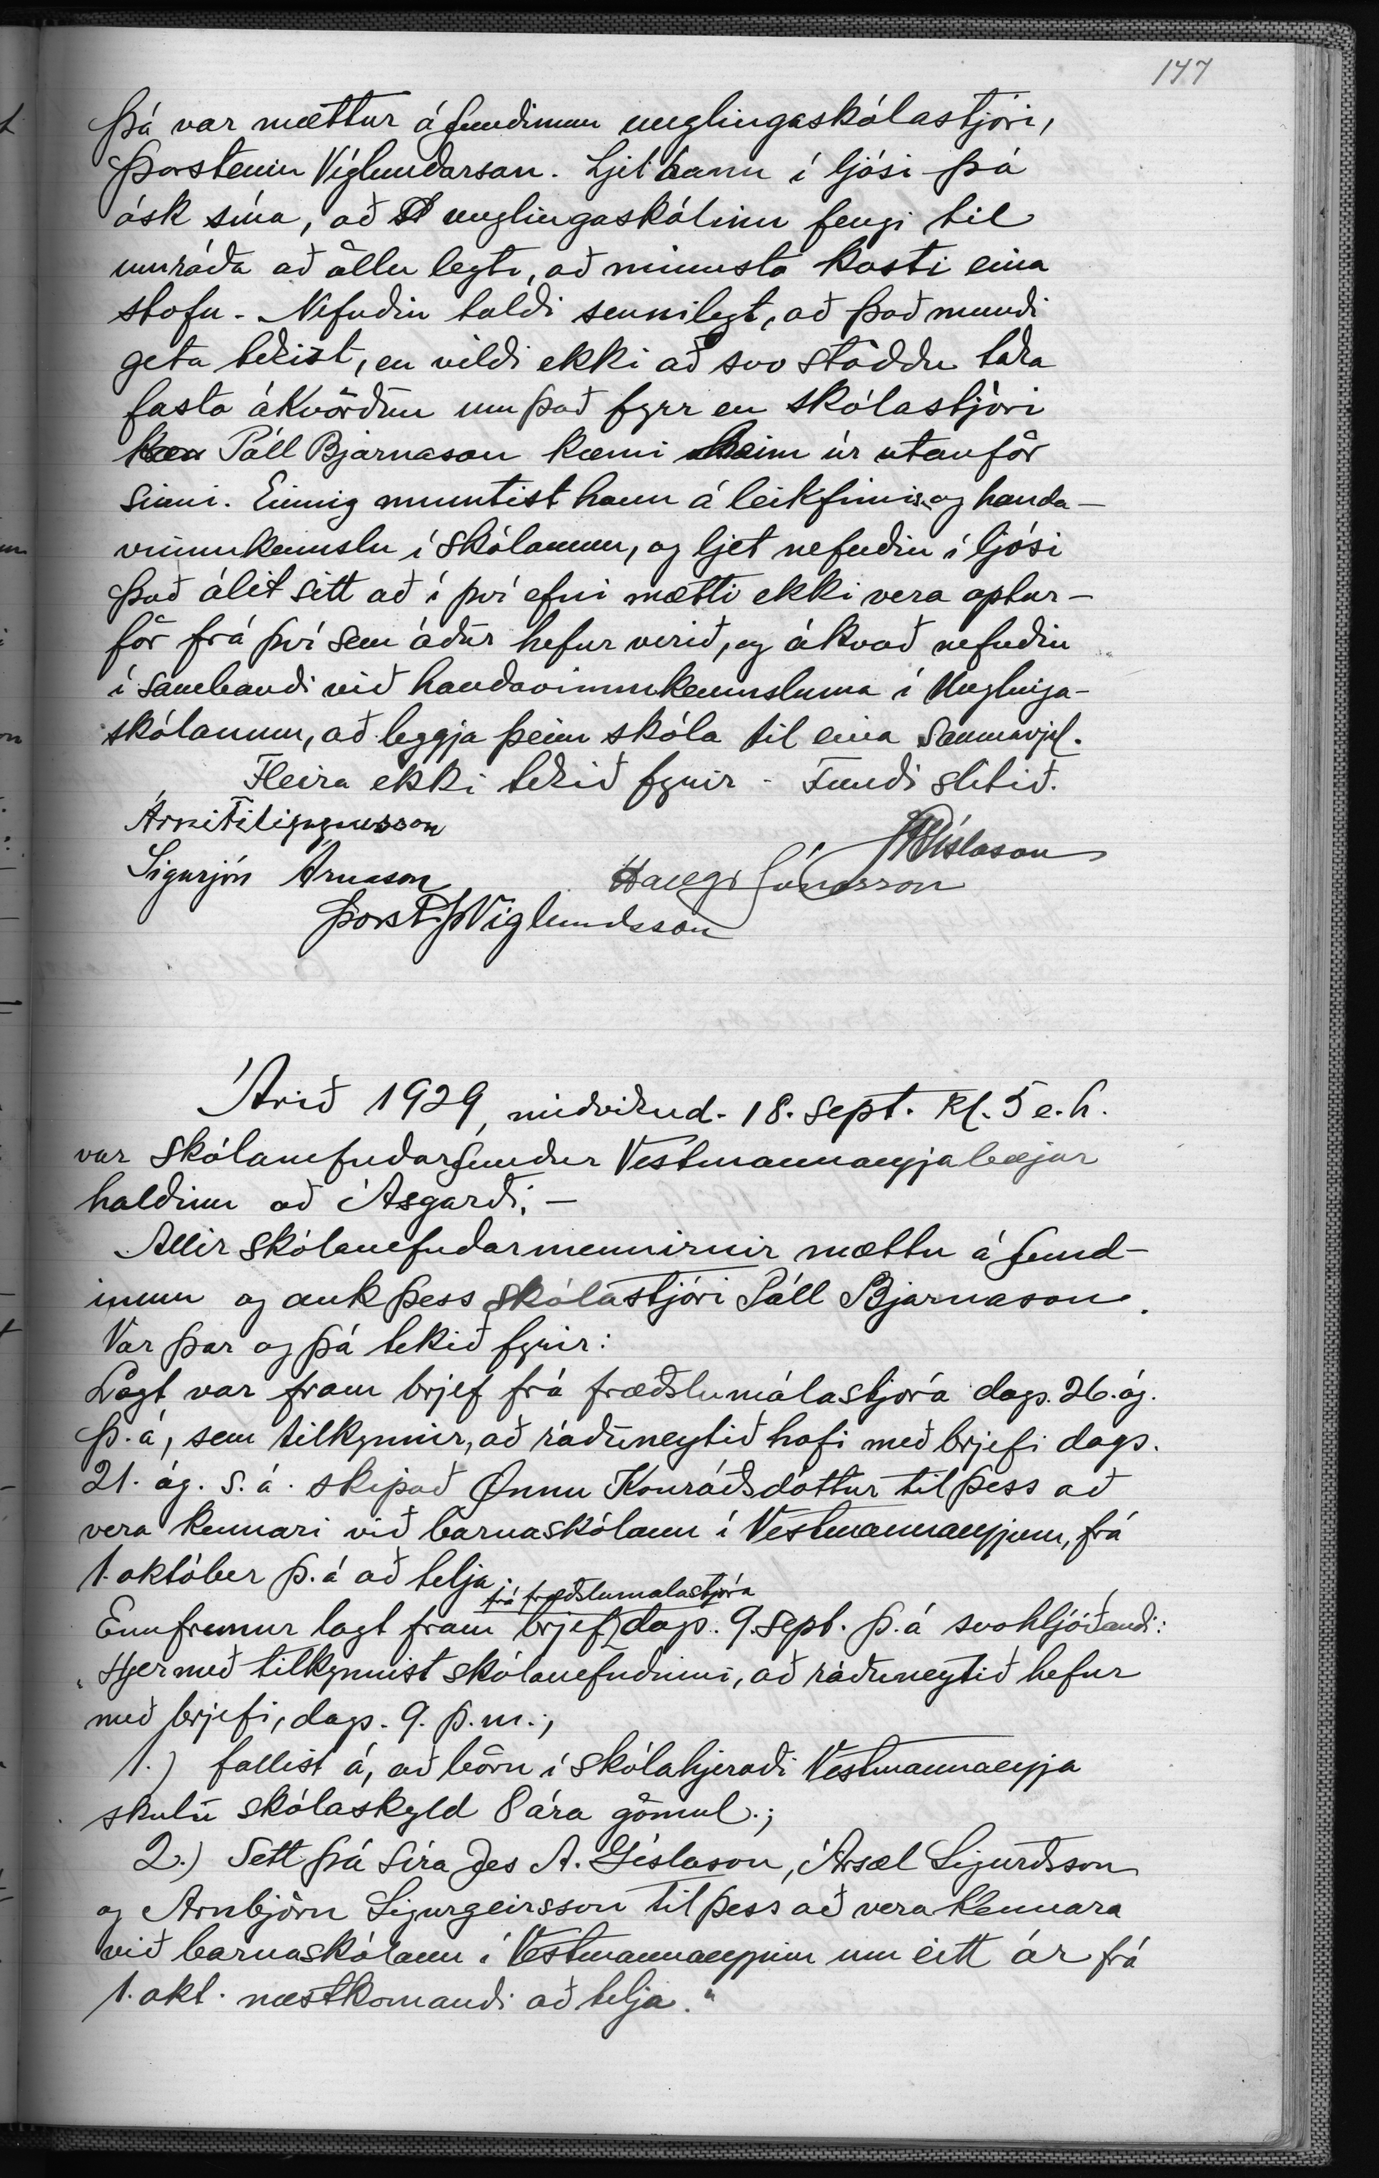 147
Þá var mættur á fundinum unglingaskólastjóri,
Þorsteinn Víglundarson. Ljet hann í ljósi þá
ósk sína, að unglingaskólinn fengi til
umráða að öllu legti, að minnsta kosti eina
stofu. Nefndin taldi sennilegt, að það mundi
geta tekist, en vildi ekki að svo stöddu taka
fasta ákvörðun um það fyrr en skólastjóri
Páll Bjarnason kæmi heim úr utanför
sinni. Einnig mintist hann á leikfimis og handa-
vinnukennslu í skólanum, og ljet nefndin í ljósi
það álit sitt að í því efni mætti ekki vera aptur-
för frá því sem áður hefur verið, og ákvað nefndin
í sambandi við handavinnukennsluna í Unglinga-
skólanum, að leggja þeim skóla til eina saumavjel.
Fleira ekki tekið fyrir - Fundi slitið.
Árni Filippusson
JAGíslason
Sigurjón Árnason
Haugi Jónsson
Þorst. Þ. Víglundsson
Árið 1929, miðvikud. 18. sept. kl. 5 e.h.
var skólanefndarfundur Vestmannaeyjabæjar
haldinn að Ásgarði. -
Allir skólanefndarmennirnir mættu á fund-
inum og auk þess skólastjóri Páll Bjarnason.
Var þar og þá tekið fyrir:
Lagt var fram brjef frá fræðslumálastjóra dags. 26. ág.
þ.á, sem tilkynnir, að ráðuneytið hafi með brjefi dags.
21. ág. s.á. skipað Önnu Konráðsdóttur til þess að
vera kennari við barnaskólann í Vestmannaeyjum, frá
1. október þ.á að telja.
frá fræðslumálastjóra
Ennfremur lagt fram brjef dags. 9. sept. þ.á svohljóðandi:
„Hjer með tilkynnist skólanefndinni, að ráðuneytið hefur
með brjefi, dags. 9. þ.m.;
1.) fallist á, að börn í skólahjeraði Vestmannaeyja
skuli skólaskyld 8 ára gömul.;
2.) Sett þá síra Jes A. Gíslason, Ársæl Sigurðsson
og Arnbjörn Sigurgeirsson til þess að vera kennara
við barnaskólann í Vestmannaeyjum um eitt ár frá
1. okt. næstkomandi að telja."